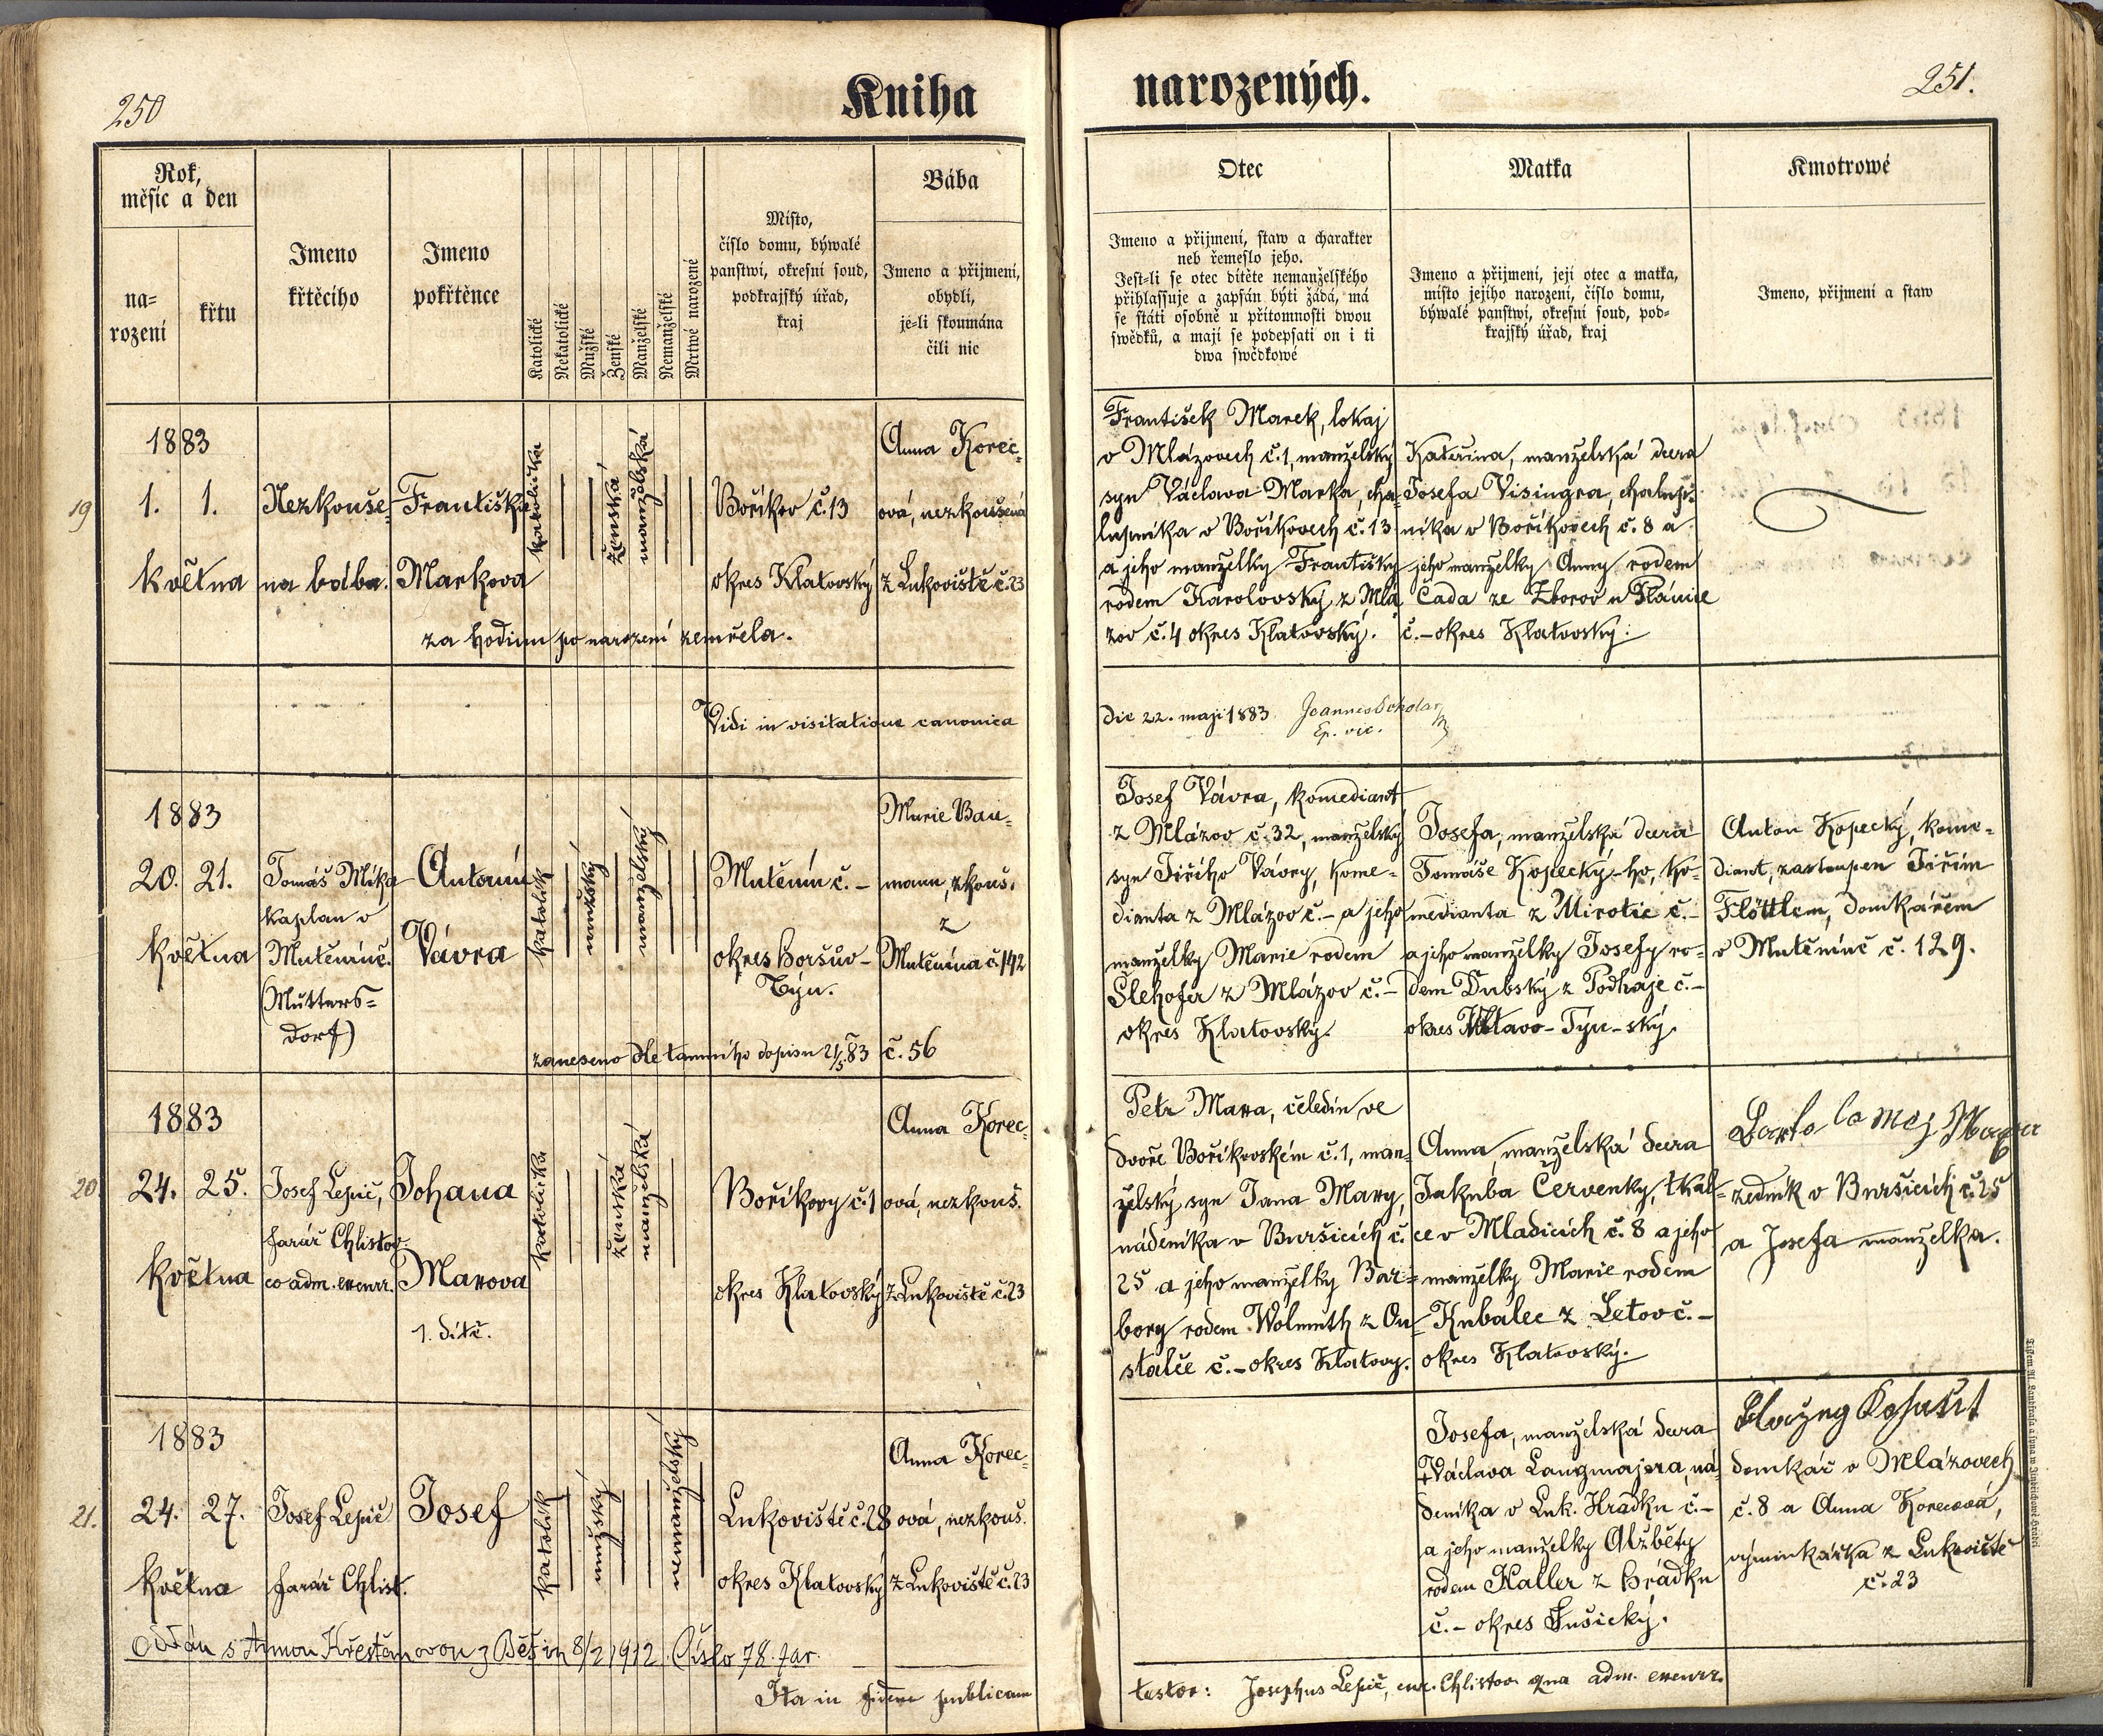 250
Kniha
narozených.
251.
Rok,
měsíc a den
na=
rození
křtu
Jmeno
křtěcího
Jmeno
pokřtěnce
Katolické
Nekatolické
Mužské
Ženské
Manželské
Nemanželské
Mrtwě narozené
Místo,
číslo domu, býwalé
panstwí, okresní soud,
podkrajský úřad,
kraj
Bába
Jmeno a přijmení,
obydlí,
je-li skoumána
čili nic
Otec
Jmeno a přijmení, staw a charakter
neb řemeslo jeho.
Jest-li se otec dítěte nemanželského
přihlassuje a zapsán býti žádá, má
se státi osobně u přítomnosti dwou
swědků, a mají se podepsati on i ti
dwa swědkowé
Matka
Jmeno a přijmení, její otec a matka,
místo jejího narození, číslo domu,
býwalé panstwí, okresní soud, pod=
krajský úřad, kraj
Kmotrowé
Jmeno, přijmení a staw
19
1883
1. 1.
května
Nezkouše-
na bába.
Františka
Markova
katolička
ženská
manželská
Boříkov č. 13
okres Klatovský
Anna Korec-
ová, nezkoušená
z Lukoviště č. 23
za hodinu po narození zemřela.
František Marek, lokaj
v Mlázovech č. 1, manželský
syn Václava Marka, cha-
lupníka v Boříkovech č. 13
a jeho manželky Františky
rodem Karolovský z Mlá
zov č. 4 okres Klatovský.
Kateřina, manželská dcera
Josefa Visingra, chalup-
níka v Boříkovech č. 8 a
jeho manželky Anny rodem
Čada ze Zborov u Plánice
č. – okres Klatovský.
Vidi in visitatione canonica
die 22. maji 1883. Joannes Scholar
Ep. vic.
1883
20. 21.
května
Tomáš Míka
kaplan v
Mutěníně.
(Mutters-
dorf)
Antonín
Vávra
katolík
mužský
manželský
Mutěnín č. –
okres Horšův-
Týn.
Marie Bau-
mann, zkouš.
z
Mutěnína č. 142
zaneseno dle tamního dopisu 21/5 83 č. 56
Josef Vávra, komediant
z Mlázov č. 32, manželský
syn Jiřího Vávry, kome-
dianta z Mlázov č. – a jeho
manželky Marie rodem
Šlehofer z Mlázov č. –
okres Klatovský.
Josefa, manželská dcera
Tomáše Kopecký-ho, ko-
medianta z Mirotic č. –
a jeho manželky Josefy ro-
dem Dubský z Podháje č. –
okres Vltavo-Týn-ský.
Anton Kopecký, kome-
diant, zastoupen Jiřím
Flöttlem, domkářem
v Mutěníně č. 129.
20.
1883
24. 25.
května
Josef Lepič,
farář Chlistov.
co adm. excurr.
Johana
Marova
1. dítě.
katolička
ženská
manželská
Boříkovy č. 1
okres Klatovský
Anna Korec-
ová, nezkouš.
z Lukoviště č. 23
Petr Mara, čeledín ve
dvoře Boříkovském č. 1, man-
želský syn Jana Mary,
nádeníka v Buršicích č.
25 a jeho manželky Bar-
bory rodem Wolmuth z On
stalče č. – okres Klatovy.
Anna, manželská dcera
Jakuba Červenky, tkal-
ce v Mladicích č. 8 a jeho
manželky Marie rodem
Kubalec z Letov č. –
okres Klatovský.
zedník v Buršicích č. 25
a Josefa manželka.
21.
1883
24. 27.
května
Josef Lepič
farář Chlist.
Josef
katolík
mužský
nemanželský
Lukoviště č. 28
okres Klatovský
Anna Korec-
ová, nezkouš.
z Lukoviště č. 23
Josefa, manželská dcera
+ Václava Langmajera, ná
deníka v Luk. Hrádku č. –
a jeho manželky Alžběty
rodem Haller z Hrádku
č. – okres Sušický.
domkář v Mlázovech
č. 8 a Anna Korecová,
výminkářka z Lukoviště
č. 23
Oddán s Annou Křesťanovou z Běšin 8/2 1912. Číslo 78. far.
Ita in fidem publicam
testor: Josephus Lepič, cur. Chlistov. qua adm. excurr.